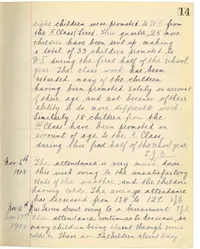 14
eight children were promoted to St I from
the I Class Lower. This quarter, 25 more
children have been sent up making
a total of 33 children promoted to
St I during the first half of the school
year. The class work has been
retarded many of the children
having been promoted solely on account
of their age, and not because of their
ability to do more difficult work.
Similarly 18 children from the
III Class have been promoted on
account of age to the Class
during this first half of the school year.
Nov 6th The attendance is very much down
1908 this week owing to the unsatisfactory
state of the weather, and the children
having colds. The average attendance
has decreased from 138 to 129.
Nov
Nov 13th The attendance continues to decrease, so
1908 many children being absent through some
colds. There are children absent today